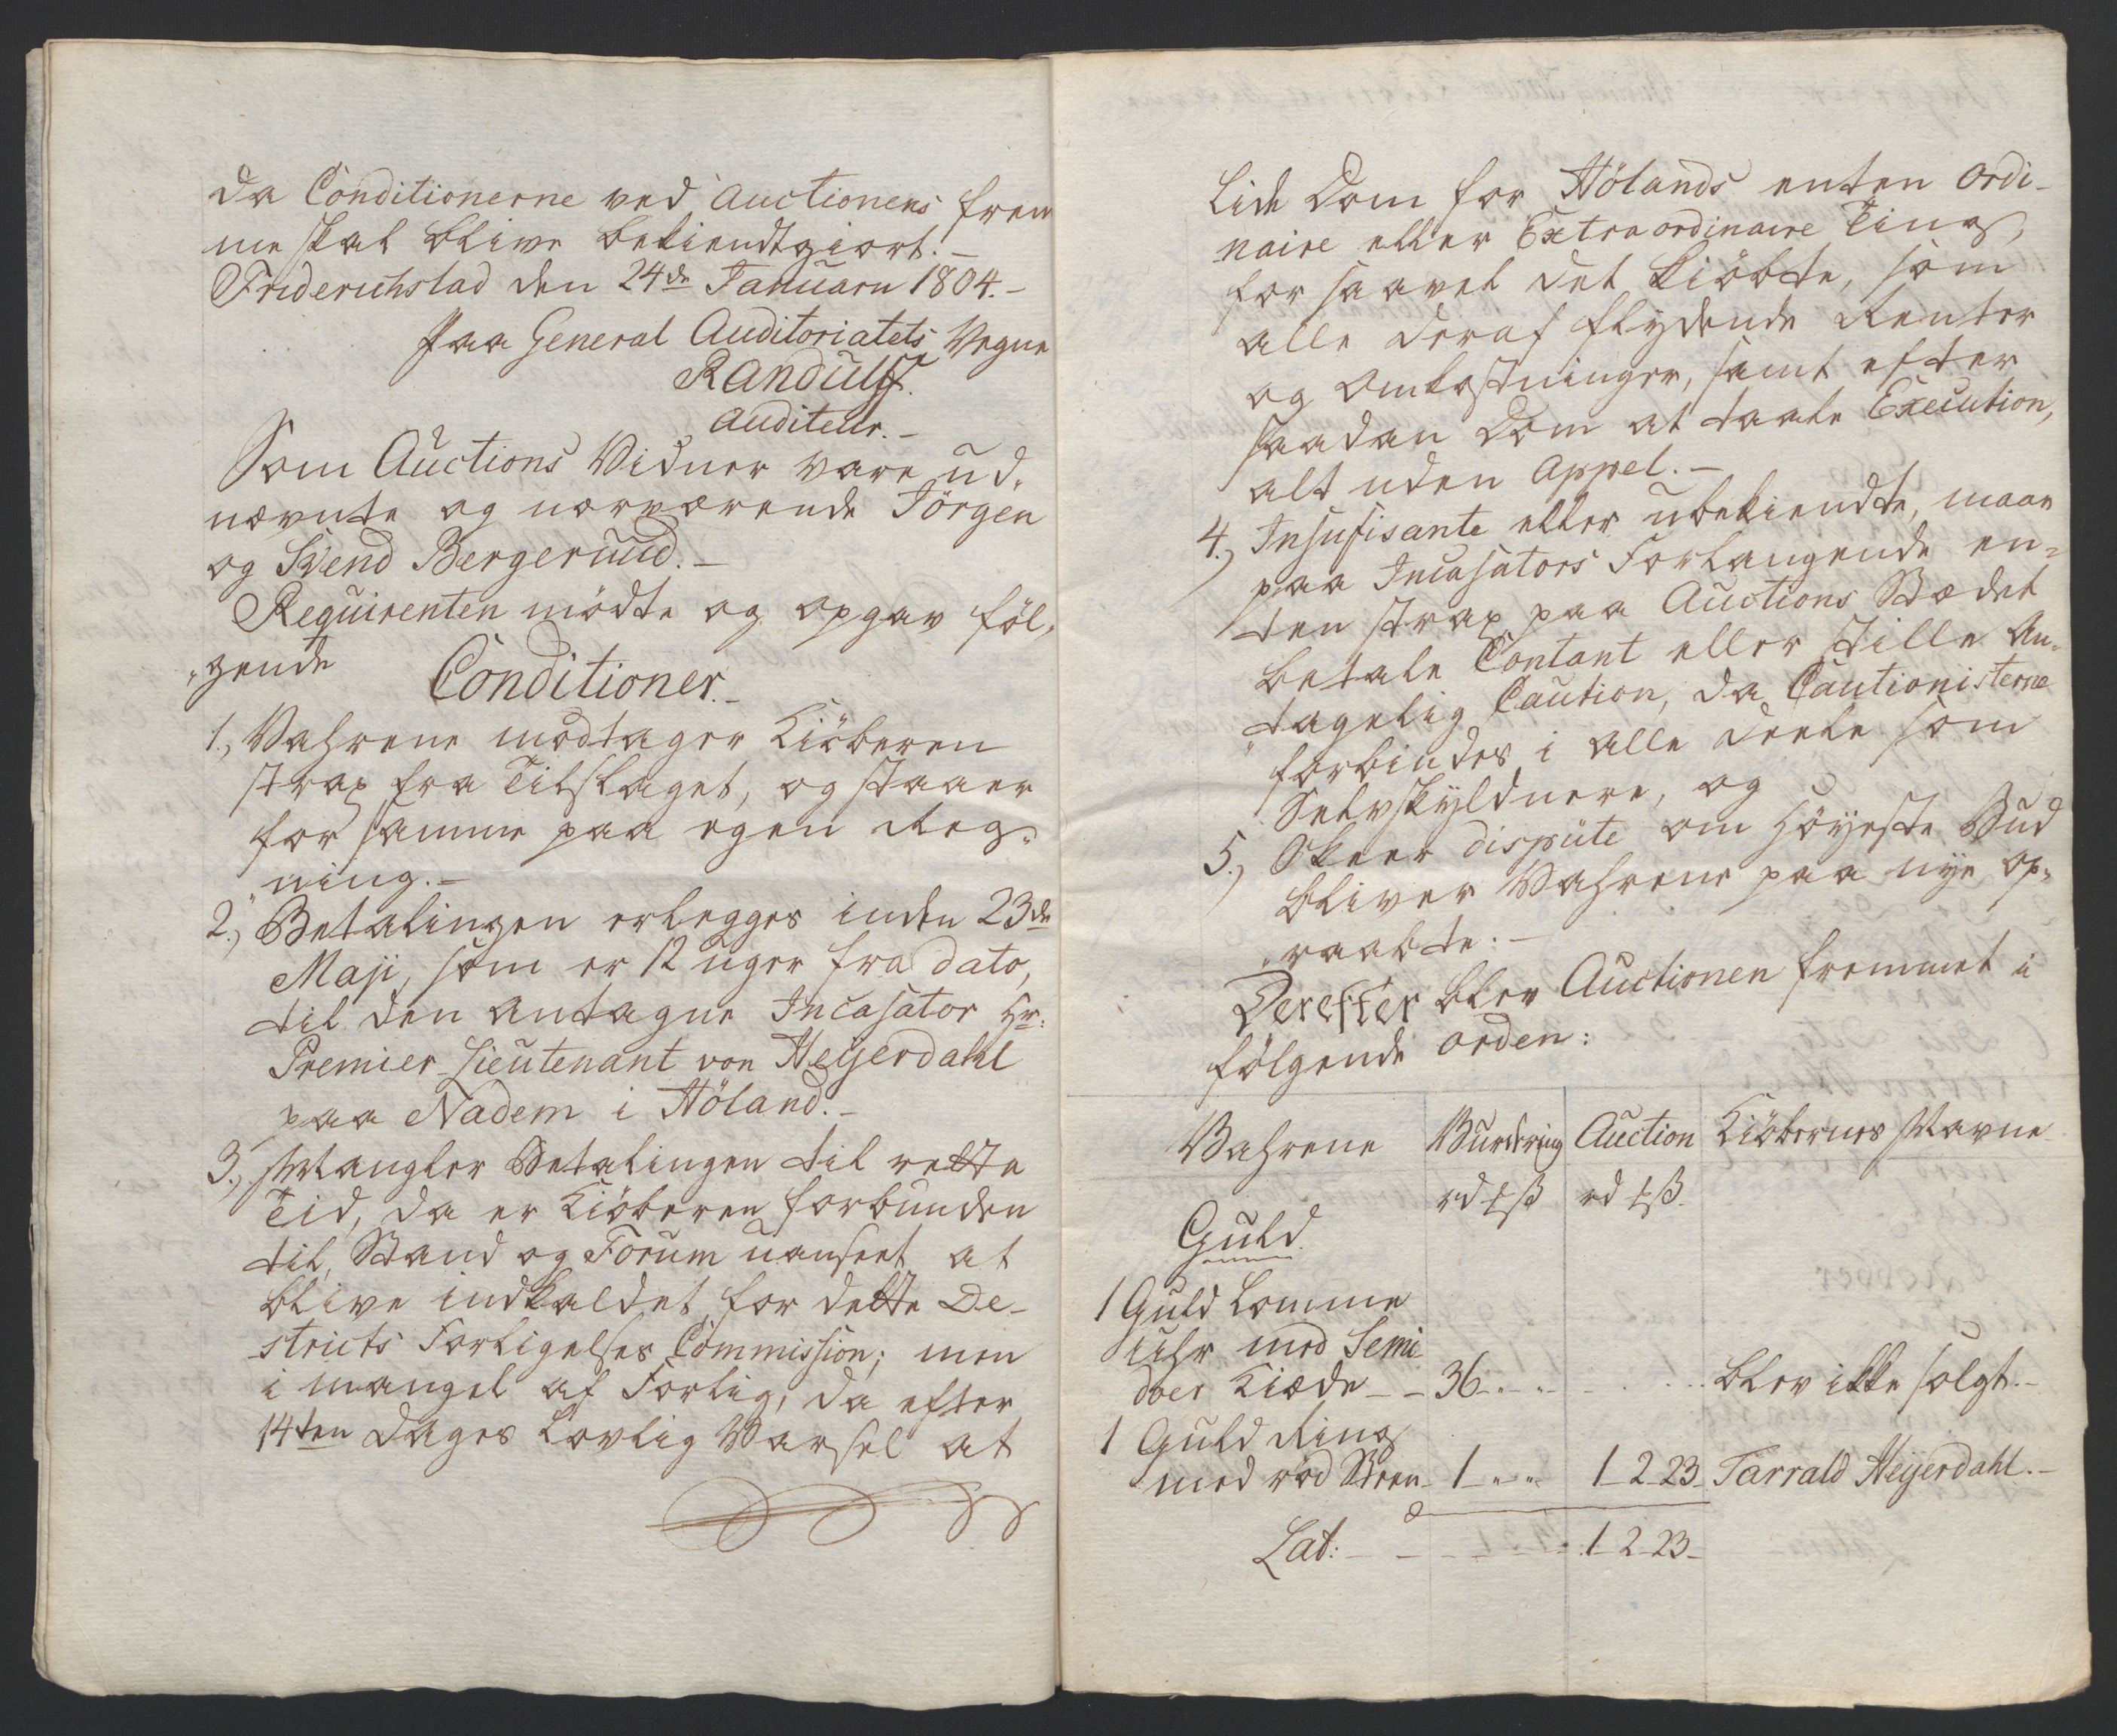 da Conditionerne ved Auctionens frem
me skal blive bekiendtgiort. –
Friderichstad den 24de Januarii 1804. –
Paa General Auditoriatets Vegne
Randulff.
Auditeur. –
Som Auctions Vidner vare ud-
nævnte og nærværende Jörgen
og Svend Bergerund. –
Requirenten mödte og opgav föl-
gende
Conditioner. –
1., Vahrene modtager Kiöberen
strax fra Tilslaget, og staaer
for samme paa egen Reg-
ning. –
2., Betalingen erlegges inden 23de
Maji, som er 12 uger fra dato,
til den antagne Incasator Hr:
Premier-Lieutenant von Heijerdahl
paa Nadem i Höland. –
3., Mangler Betalingen til rette
Tid, da er Kiöberen forbunden
til, Stand og Forum uanseet at
blive indkaldet for dette De-
stricts Forligelses Commission; men
i mangel af Forlig, da efter
14ten dages Lovlig Varsel at
lide Dom for Hölands enten ordi-
naire eller Extraordinaire Ting,
for saavel det Kiöbte, som
alle deraf flydende Renter
og Omkostninger, samt efter
saadan Dom at taale Execution,
alt uden Appel. –
4., Insufisante eller ubekiendte, maae
paa Incasators Forlangende en-
ten strax paa Auctions Stædet
betale Contant eller stille An-
tagelig Caution, da Cautionisterne
forbindes i alle deele som
Selvskyldnere, og
5., Skeer dispüte om höyeste Bud
bliver Vahrene paa nye op-
raabte. –
Derefter blev Auctionen fremmet i
fölgende orden:
Vahrene Vurdering Auction Kiöbernes Navne
rd ꝶ ß rd ꝶ ß.
Guld.
1 Guld Lomme
Uhr med Semi
doer Kiæde – – 36 – „ – „ blev ikke solgt. –
1 Guld Ring
med röd Steen – 1 – „ – „ 1 – 2 – 23 – Tarrald Heijerdahl. –
Lat: – – – 1 – 2 – 23 –